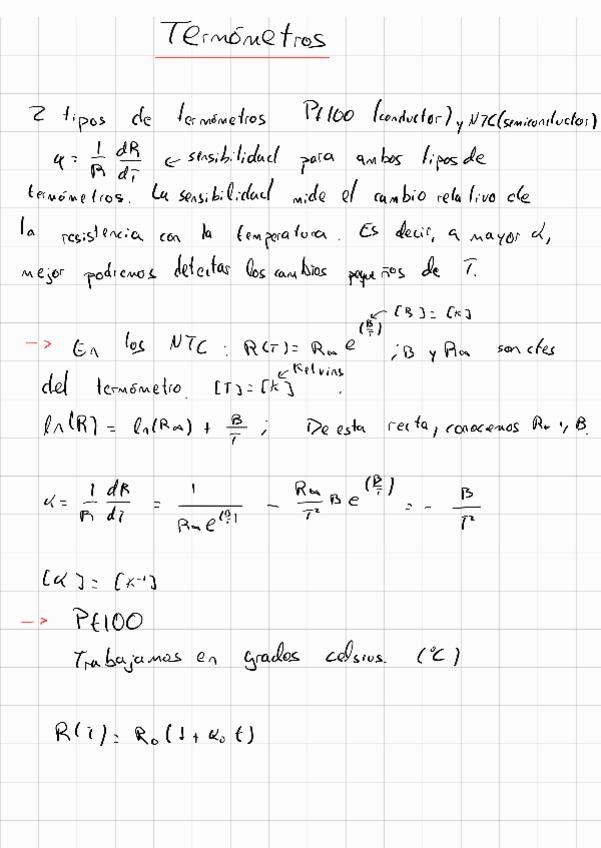 Termómetros
2 tipos de termómetros Pt100 (conductor) y NTC (semiconductor)
α = 1/R dR/dT ← sensibilidad para ambos tipos de
termómetros. La sensibilidad mide el cambio relativo de
la resistencia con la temperatura. Es decir, a mayor α,
mejor podremos detectar los cambios pequeños de T.
-> En los NTC : R(T) = R∞ e^(B/T) ← [B] = [K] ; B y R∞ son ctes
del termómetro. [T] = [K] ← Kelvins
ln(R) = ln(R∞) + B/T ; De esta recta, conocemos R∞ y B.
α = 1/R dR/dT = 1/(R∞ e^(B/T)) - R∞/T² B e^(B/T) = - B/T²
[α] = [K⁻¹]
-> Pt100
Trabajamos en grados celsius. (°C)
R(T) = R₀ (1 + α₀ t)